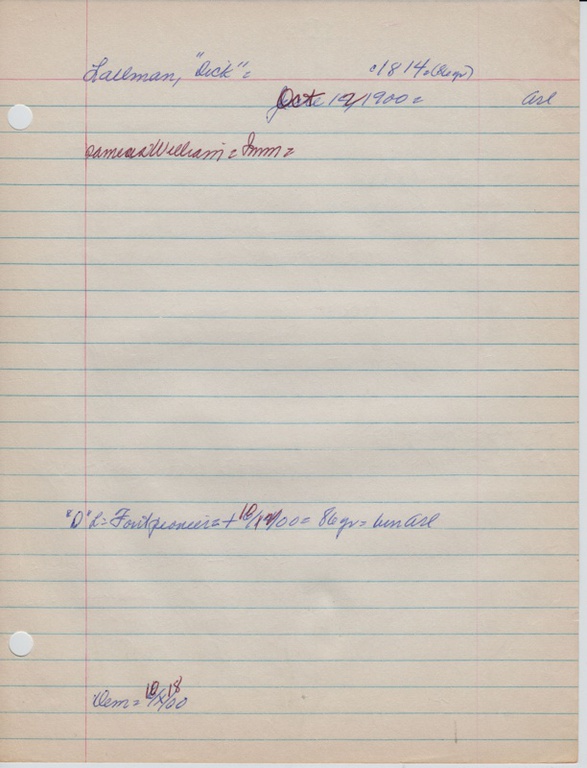 Lallman, "Dick" =
c1814 (86yr)
Oct 12/1900 =
arl
same as William = Imm =
"D" L = Ford pioneer = + 10/12/00 = 86 yr = bur arl
Dem = 10/18/00